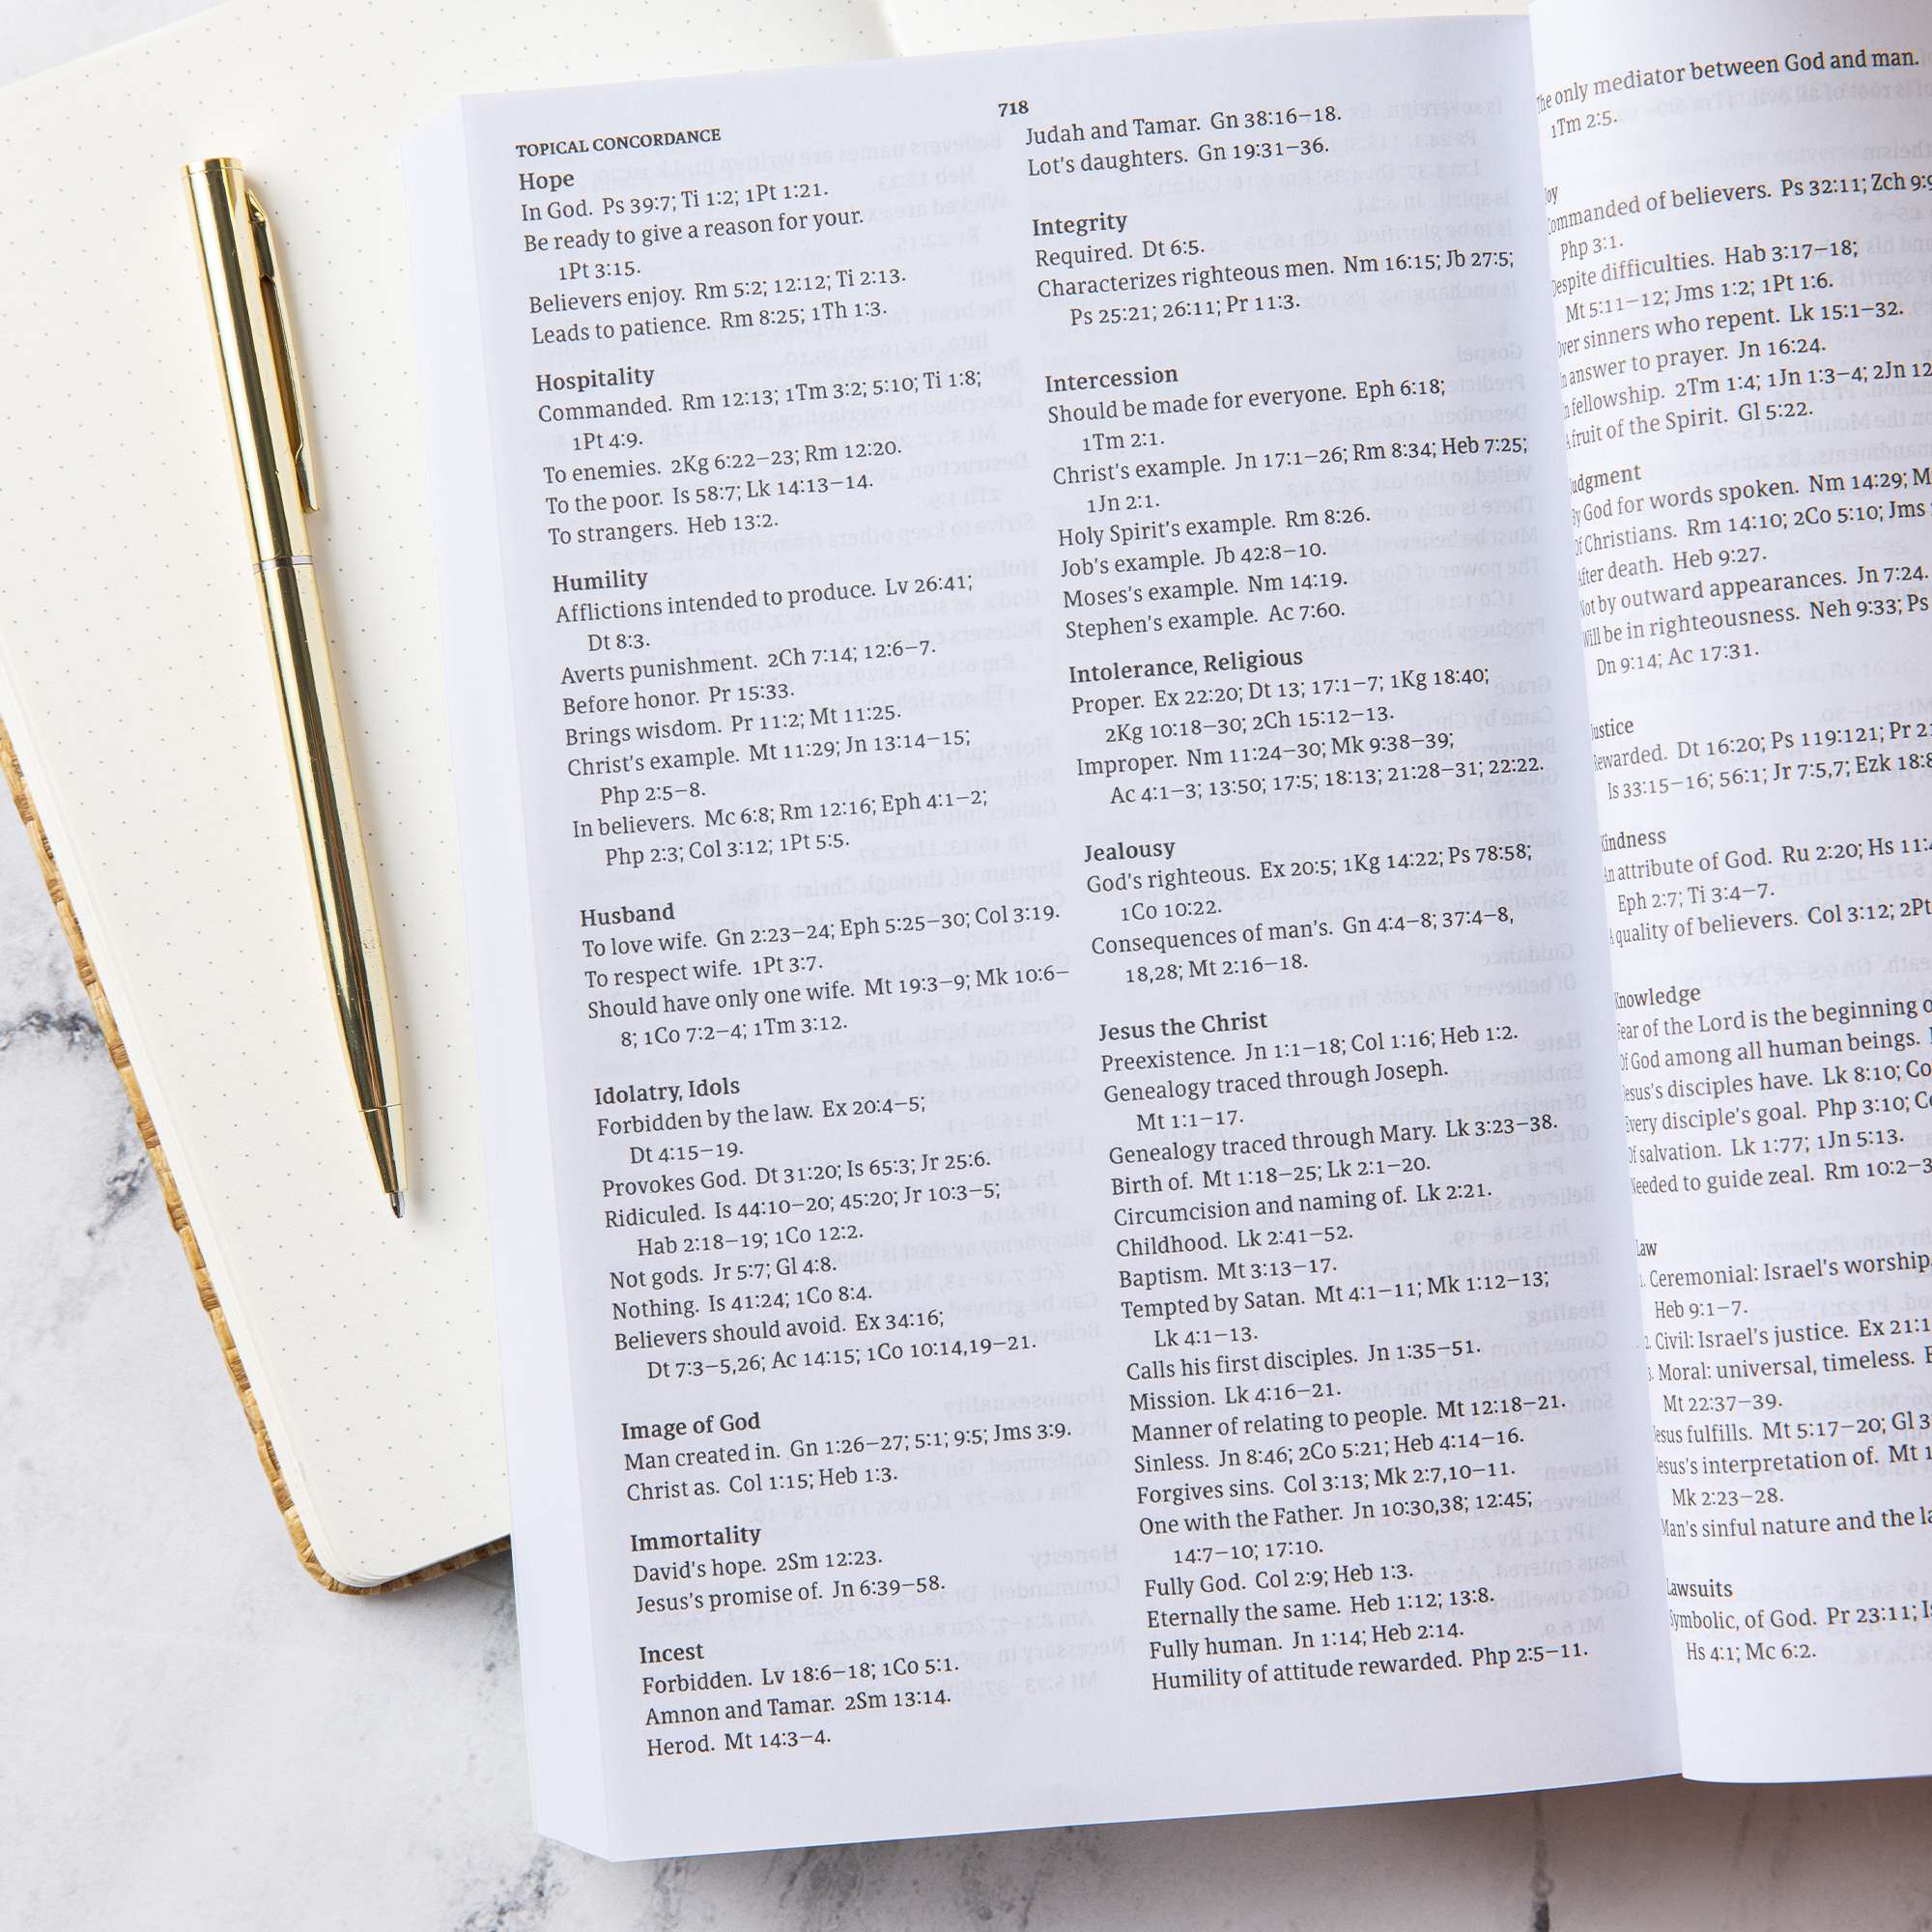 718
TOPICAL CONCORDANCE
Hope
In God. Ps 39:7; Ti 1:2; 1Pt 1:21.
Be ready to give a reason for your.
1Pt 3:15.
Believers enjoy. Rm 5:2; 12:12; Ti 2:13.
Leads to patience. Rm 8:25; 1Th 1:3.
Hospitality
Commanded. Rm 12:13; 1Tm 3:2; 5:10; Ti 1:8;
1Pt 4:9.
To enemies. 2Kg 6:22–23; Rm 12:20.
To the poor. Is 58:7; Lk 14:13–14.
To strangers. Heb 13:2.
Humility
Afflictions intended to produce. Lv 26:41;
Dt 8:3.
Averts punishment. 2Ch 7:14; 12:6–7.
Before honor. Pr 15:33.
Brings wisdom. Pr 11:2; Mt 11:25.
Christ's example. Mt 11:29; Jn 13:14–15;
Php 2:5–8.
In believers. Mc 6:8; Rm 12:16; Eph 4:1–2;
Php 2:3; Col 3:12; 1Pt 5:5.
Husband
To love wife. Gn 2:23–24; Eph 5:25–30; Col 3:19.
To respect wife. 1Pt 3:7.
Should have only one wife. Mt 19:3–9; Mk 10:6–
8; 1Co 7:2–4; 1Tm 3:12.
Idolatry, Idols
Forbidden by the law. Ex 20:4–5;
Dt 4:15–19.
Provokes God. Dt 31:20; Is 65:3; Jr 25:6.
Ridiculed. Is 44:10–20; 45:20; Jr 10:3–5;
Hab 2:18–19; 1Co 12:2.
Not gods. Jr 5:7; Gl 4:8.
Nothing. Is 41:24; 1Co 8:4.
Believers should avoid. Ex 34:16;
Dt 7:3–5,26; Ac 14:15; 1Co 10:14,19–21.
Image of God
Man created in. Gn 1:26–27; 5:1; 9:5; Jms 3:9.
Christ as. Col 1:15; Heb 1:3.
Immortality
David's hope. 2Sm 12:23.
Jesus's promise of. Jn 6:39–58.
Incest
Forbidden. Lv 18:6–18; 1Co 5:1.
Amnon and Tamar. 2Sm 13:14.
Herod. Mt 14:3–4.
Judah and Tamar. Gn 38:16–18.
Lot's daughters. Gn 19:31–36.
Integrity
Required. Dt 6:5.
Characterizes righteous men. Nm 16:15; Jb 27:5;
Ps 25:21; 26:11; Pr 11:3.
Intercession
Should be made for everyone. Eph 6:18;
1Tm 2:1.
Christ's example. Jn 17:1–26; Rm 8:34; Heb 7:25;
1Jn 2:1.
Holy Spirit's example. Rm 8:26.
Job's example. Jb 42:8–10.
Moses's example. Nm 14:19.
Stephen's example. Ac 7:60.
Intolerance, Religious
Proper. Ex 22:20; Dt 13; 17:1–7; 1Kg 18:40;
2Kg 10:18–30; 2Ch 15:12–13.
Improper. Nm 11:24–30; Mk 9:38–39;
Ac 4:1–3; 13:50; 17:5; 18:13; 21:28–31; 22:22.
Jealousy
God's righteous. Ex 20:5; 1Kg 14:22; Ps 78:58;
1Co 10:22.
Consequences of man's. Gn 4:4–8; 37:4–8,
18,28; Mt 2:16–18.
Jesus the Christ
Preexistence. Jn 1:1–18; Col 1:16; Heb 1:2.
Genealogy traced through Joseph.
Mt 1:1–17.
Genealogy traced through Mary. Lk 3:23–38.
Birth of. Mt 1:18–25; Lk 2:1–20.
Circumcision and naming of. Lk 2:21.
Childhood. Lk 2:41–52.
Baptism. Mt 3:13–17.
Tempted by Satan. Mt 4:1–11; Mk 1:12–13;
Lk 4:1–13.
Calls his first disciples. Jn 1:35–51.
Mission. Lk 4:16–21.
Manner of relating to people. Mt 12:18–21.
Sinless. Jn 8:46; 2Co 5:21; Heb 4:14–16.
Forgives sins. Col 3:13; Mk 2:7,10–11.
One with the Father. Jn 10:30,38; 12:45;
14:7–10; 17:10.
Fully God. Col 2:9; Heb 1:3.
Eternally the same. Heb 1:12; 13:8.
Fully human. Jn 1:14; Heb 2:14.
Humility of attitude rewarded. Php 2:5–11.
The only mediator between God and man.
1Tm 2:5.
Joy
Commanded of believers. Ps 32:11; Zch
Php 3:1.
Despite difficulties. Hab 3:17–18;
Mt 5:11–12; Jms 1:2; 1Pt 1:6.
Over sinners who repent. Lk 15:1–32.
In answer to prayer. Jn 16:24.
In fellowship. 2Tm 1:4; 1Jn 1:3–4; 2Jn
A fruit of the Spirit. Gl 5:22.
Judgment
By God for words spoken. Nm 14:29;
Of Christians. Rm 14:10; 2Co 5:10; Jms
After death. Heb 9:27.
Not by outward appearances. Jn 7:24.
Will be in righteousness. Neh 9:33; Ps
Dn 9:14; Ac 17:31.
Justice
Rewarded. Dt 16:20; Ps 119:121; Pr
Is 33:15–16; 56:1; Jr 7:5,7; Ezk
Kindness
An attribute of God. Ru 2:20; Hs
Eph 2:7; Ti 3:4–7.
A quality of believers. Col 3:12; 2Pt
Knowledge
Fear of the Lord is the beginning
Of God among all human beings.
Jesus's disciples have. Lk 8:10;
Every disciple's goal. Php 3:10;
Of salvation. Lk 1:77; 1Jn 5:13.
Needed to guide zeal. Rm
Law
1. Ceremonial: Israel's worship.
Heb 9:1–7.
2. Civil: Israel's justice. Ex
3. Moral: universal, timeless.
Mt 22:37–39.
Jesus fulfills. Mt 5:17–20; Gl
Jesus's interpretation of. Mt
Mk 2:23–28.
Man's sinful nature and the
Lawsuits
Symbolic, of God. Pr 23:11;
Hs 4:1; Mc 6:2.